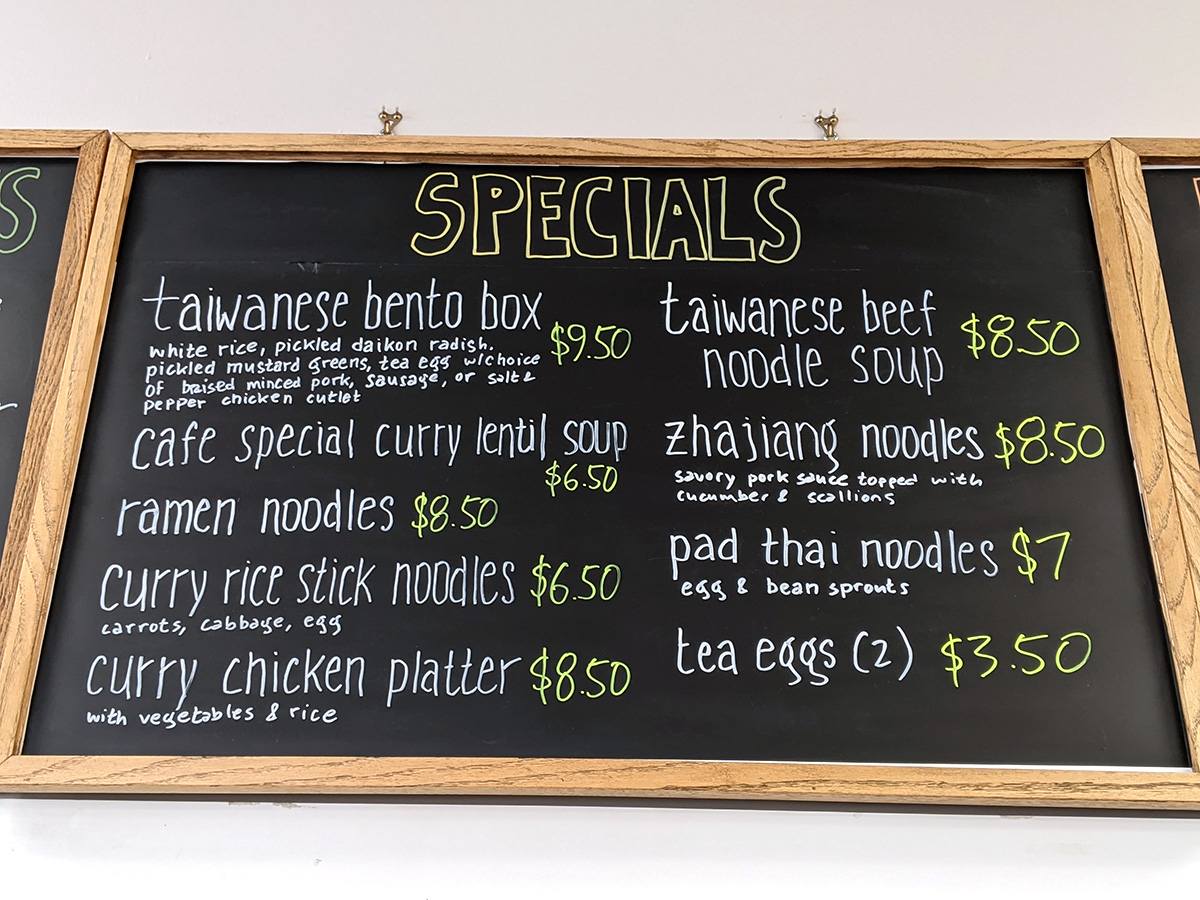 S
SPECIALS
taiwanese bento box $9.50
white rice, pickled daikon radish.
pickled mustard greens, tea egg w/choice
of baised minced pork, sausage, or salt &
pepper chicken cutlet
cafe special curry lentil soup
$6.50
ramen noodles $8.50
curry rice stick noodles $6.50
carrots, cabbage, egg
curry chicken platter $8.50
with vegetables & rice
taiwanese beef
noodle soup $8.50
zhajiang noodles $8.50
savory pork sauce topped with
cucumber & scallions
pad thai noodles $7
egg & bean sprouts
tea eggs (2) $3.50